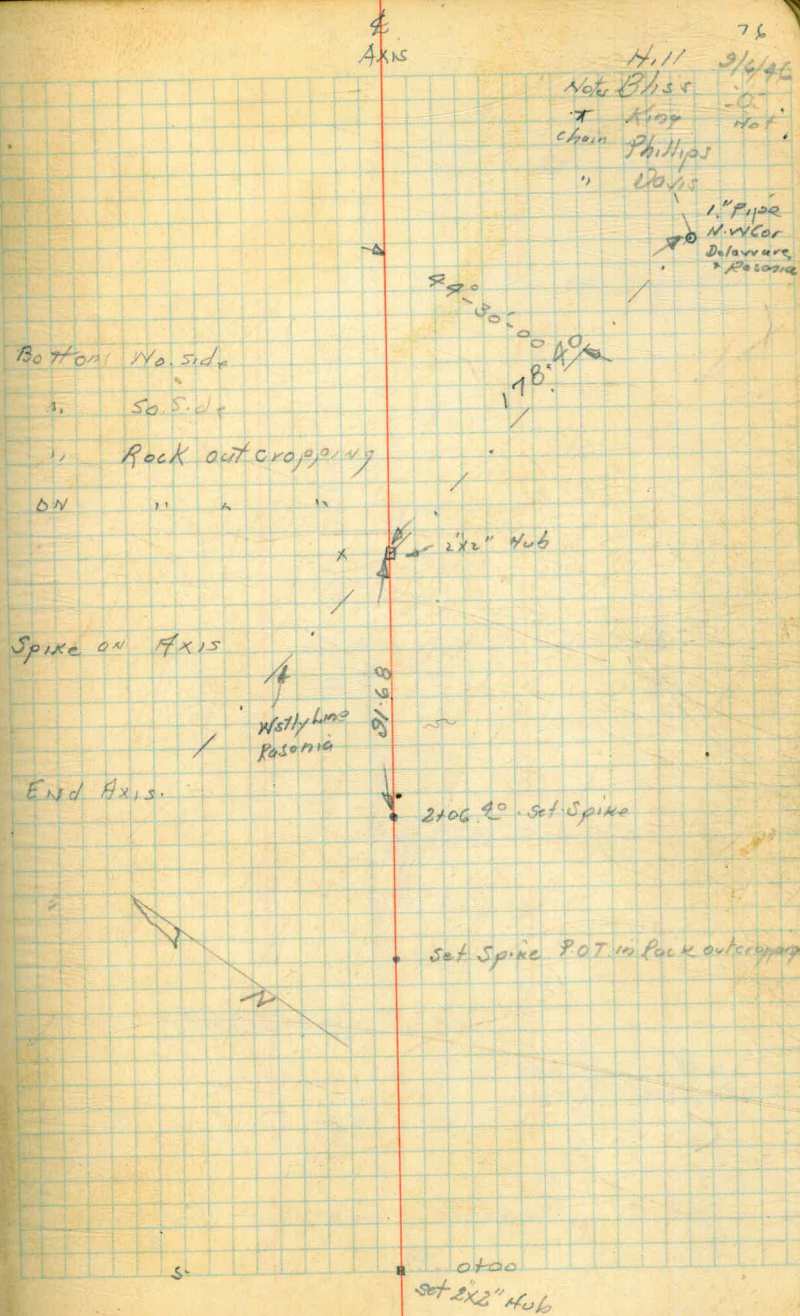 76
℄
Axis
Hill 9/6/46
Notes Bliss -0-
⊼ King Hot
chain Phillips
" Davis
1" Pipe
N.W Cor
Delaware
+ Rasonia
44°-30'-00
178.40
Bottom No. side
" So. Side
" Rock outcropping
ON " " "
x 2"x2" Hub
Spike ON Axis
91.68
Wstly Line
Rasonia
End Axis.
2+06.40 . set Spike
Set Spike P.O.T. in Rock outcropping
N
S-
0+00
set 2"x2" Hub